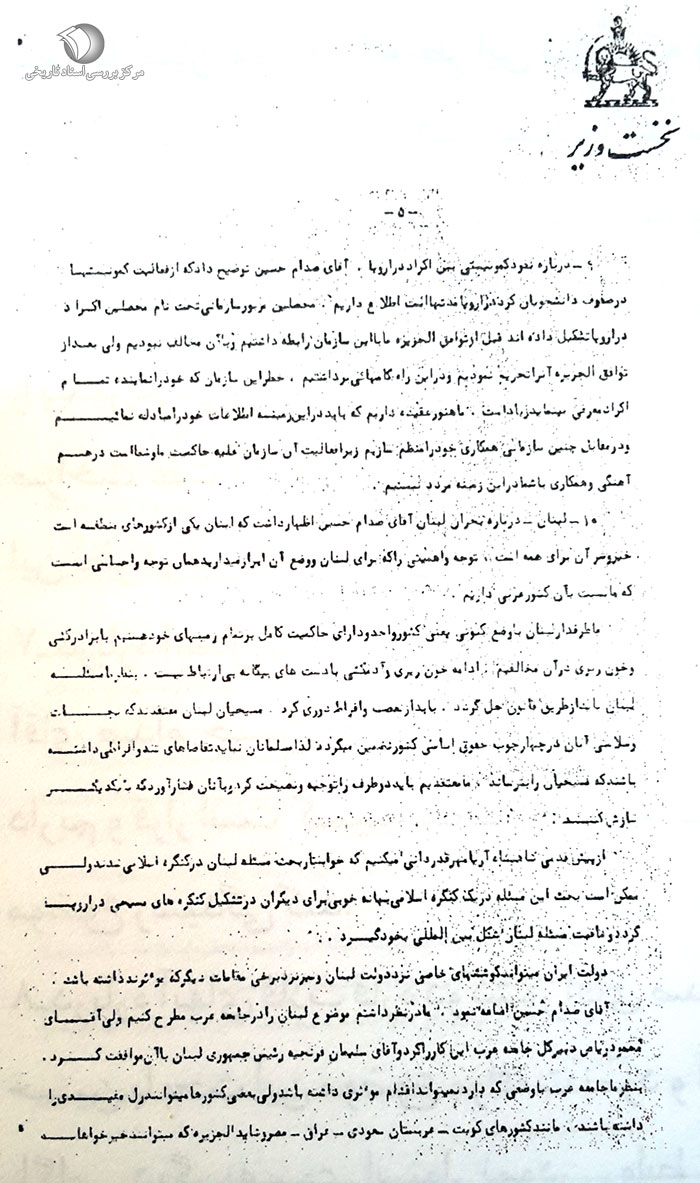 مرکز بررسی اسناد تاریخی
نخست وزیر
- ۵ -
۹ - درباره نفوذ کمونیستی بین اکراد در اروپا . آقای صدام حسین توضیح داد که از فعالیت کمونیستها
در صفوف دانشجویان کرد در اروپا مدتهاست اطلاع داریم . محصلین مزبور سازمانی تحت نام محصلین اکراد
در اروپا تشکیل داده اند قبل از توافق الجزیره ما با این سازمان رابطه داشتیم و با آن مخالف نبودیم ولی بعد از
توافق الجزیره آنرا تحریم نمودیم و در این راه گامهائی برداشتیم . خطر این سازمان که خود را نماینده تمام
اکراد معرفی مینماید زیاد است . ما هنوز عقیده داریم که باید در این زمینه اطلاعات خود را مبادله نمائیم
و در مقابل چنین سازمانی همکاری خود را منظم سازیم زیرا فعالیت آن سازمان علیه حاکمیت ما و شما است در هم
آهنگی و همکاری با شما در این زمینه مردد نیستیم .
۱۰ - لبنان - درباره بحران لبنان آقای صدام حسین اظهار داشت که لبنان یکی از کشورهای منطقه است
خیر و شر آن برای همه است . توجه و اهمیتی را که برای لبنان و وضع آن ابراز میدارید همان توجه و احساسی است
که ما نسبت بآن کشور عربی داریم .
ما طرفدار لبنان با وضع کنونی یعنی کشور واحد و دارای حاکمیت کامل بر تمام زمینهای خود هستیم با برادرکشی
و خون ریزی در آن مخالفیم . ادامه خون ریزی و آدمکشی با دست های بیگانه بی ارتباط نیست . بنظر ما مسئله
لبنان باید از طریق قانون حل گردد . باید از تعصب و افراط دوری کرد . مسیحیان لبنان معتقدند که نجات
و سلامتی آنان در چهارچوب حقوق اساسی کشور تضمین میگردد لذا مسلمانان نباید تقاضاهای تند و افراطی داشته
باشند که مسیحیان را بترساند . ما معتقدیم باید دو طرف را توجیه و نصیحت کرد و بآنان فشار آورد که با یکدیگر
سازش کنند .
از پیش قدمی شاهنشاه آریامهر قدردانی میکنیم که خواستار بحث مسئله لبنان در کنگره اسلامی شدند ولی
ممکن است بحث این مسئله در یک کنگره اسلامی بهانه خوبی برای دیگران در تشکیل کنگره های مسیحی در اروپا
گردد و عاقبت مسئله لبنان شکل بین المللی بخود گیرد .
دولت ایران میتواند کوششهای خاصی نزد دولت لبنان و نیز نزد برخی مقامات دیگر که موثرند داشته باشد .
آقای صدام حسین اضافه نمود . ما در نظر داشتیم موضوع لبنان را در جامعه عرب مطرح کنیم ولی آقای
محمود ریاض دبیرکل جامعه عرب این کار را کرد و آقای سلیمان فرنجیه رئیس جمهوری لبنان با آن موافقت کرد .
بنظر ما جامعه عرب با وضعی که دارد نمیتواند اقدام موثری داشته باشد ولی بعضی کشورها میتوانند رل مفیدی را
داشته باشند . مانند کشورهای کویت - عربستان سعودی - عراق - مصر و شاید الجزیره که میتوانند خیرخواهانه